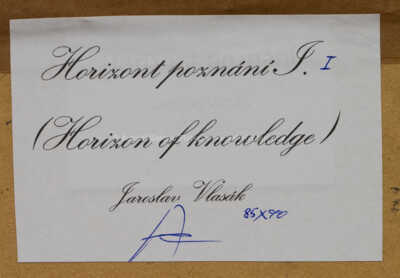 Horizont poznání I. I
(Horizon of knowledge)
Jaroslav Vlasák
85x90